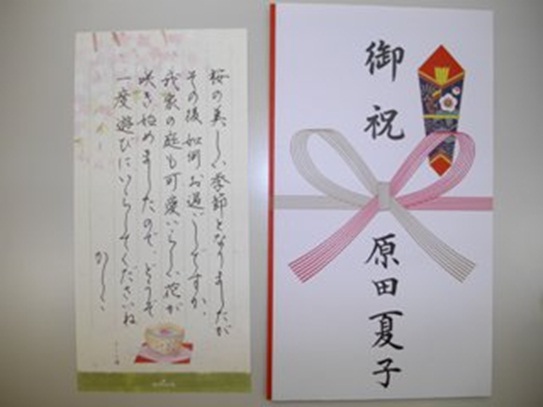 桜の美しい季節となりましたが
その後、如何お過しですか。
我家の庭も可愛いらしい花が
咲き始めましたので、どうぞ
一度遊びにいらしてくださいね
かしこ
御祝
原田夏子